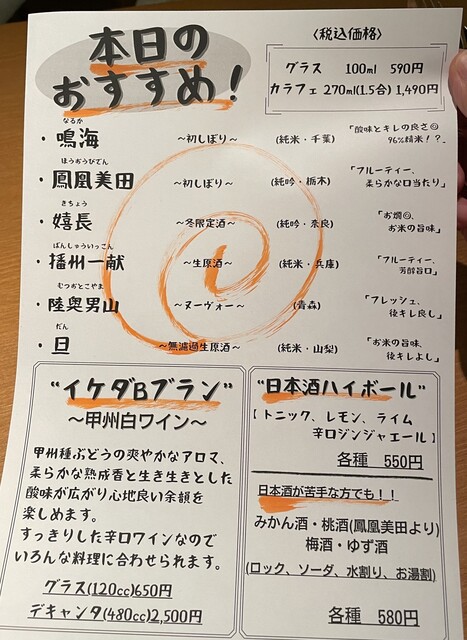 本日の
おすすめ！
〈税込価格〉
グラス 100ml 590円
カラフェ 270ml(1.5合) 1,490円
なるか
・鳴海 〜初しぼり〜 (純米・千葉) 「酸味とキレの良さ◎
96%精米！？」
ほうおうびでん
・鳳凰美田 〜初しぼり〜 (純吟・栃木) 「フルーティー、
柔らかな口当たり」
きちょう
・嬉長 〜冬限定酒〜 (純吟・奈良) 「お燗◎、
お米の旨味」
ばんしゅういっこん
・播州一献 〜生原酒〜 (純米・兵庫) 「フルーティー、
芳醇旨口」
むつおとこやま
・陸奥男山 〜ヌーヴォー〜 (青森) 「フレッシュ、
後キレ良し」
だん
・旦 〜無濾過生原酒〜 (純米・山梨) 「お米の旨味、
後キレよし」
"イケダBブラン"
〜甲州白ワイン〜
甲州種ぶどうの爽やかなアロマ、
柔らかな熟成香と生き生きとした
酸味が広がり心地良い余韻を
楽しめます。
すっきりした辛口ワインなので
いろんな料理に合わせられます。
グラス(120cc)650円
デキャンタ(480cc)2,500円
"日本酒ハイボール"
【トニック、レモン、ライム
辛口ジンジャエール】
各種 550円
日本酒が苦手な方でも！！
みかん酒・桃酒(鳳凰美田より)
梅酒・ゆず酒
(ロック、ソーダ、水割り、お湯割)
各種 580円